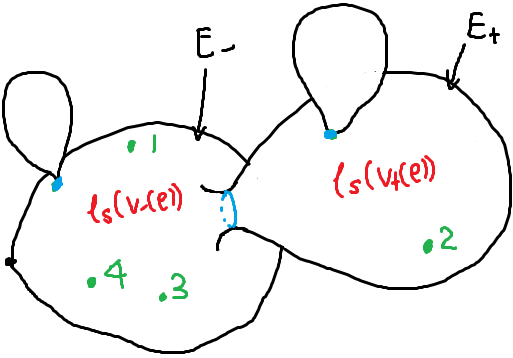 E-
E+
1
ls(v-(e))
ls(v+(e))
2
4
3